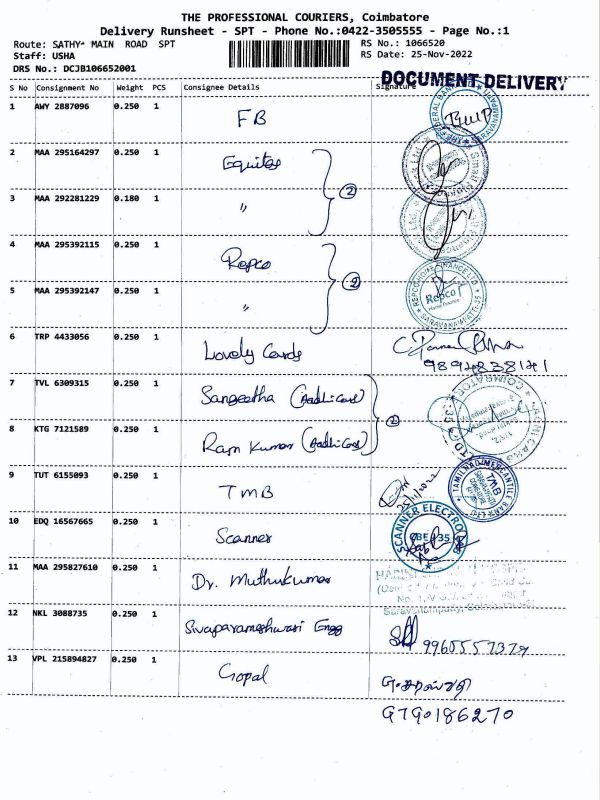 THE PROFESSIONAL COURIERS, Coimbatore
Delivery Runsheet - SPT - Phone No.:0422-3505555 - Page No.:1
Route: SATHY* MAIN ROAD SPT
RS No.: 1066520
Staff: USHA
RS Date: 25-Nov-2022
DRS No.: DCJB106652001
DOCUMENT DELIVERY
S No Consignment No Weight PCS Consignee Details Signature
1 AWY 2887096 0.250 1 FB
2 MAA 295164297 0.250 1 Equitas
3 MAA 292281229 0.180 1 " 2
4 MAA 295392115 0.250 1 Repco
5 MAA 295392147 0.250 1 " 2
REPCO HOME FINANCE LTD
Repco
Home Finance
SARAVANAMPATTI-35
6 TRP 4433056 0.250 1 Lovely Cards
9894838141
7 TVL 6309315 0.250 1 Sangeetha (Aadhi Card)
8 KTG 7121589 0.250 1 Ram Kumar (Aadhi Card) 2
9 TUT 6155093 0.250 1 TMB
25/11/2022
TAMILNAD MERCANTILE BANK LTD
TMB
10 EDQ 16567665 0.250 1 Scanner
SCANNER ELECTRO
CBE-35
11 MAA 295827610 0.250 1 Dr. Muthukumar
12 NKL 3088735 0.250 1 Sivaparameshwari Engg
9960557379
13 VPL 215894827 0.250 1 Gopal
9790186270